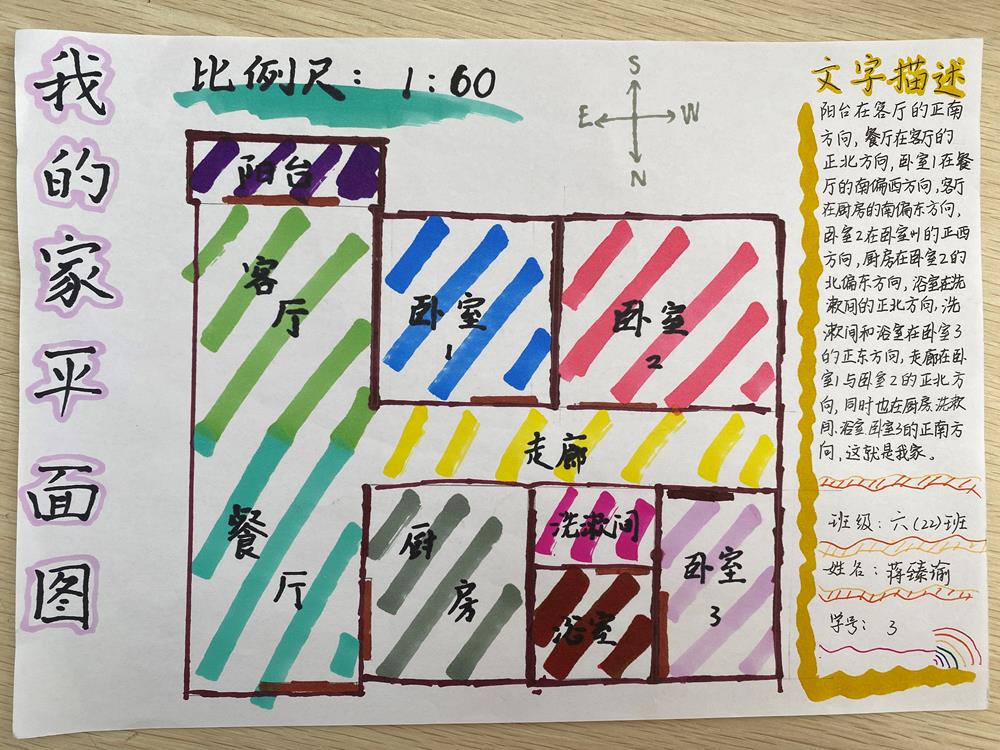 我的家平面图
比例尺：1:60
S
E W
N
阳台
客厅
卧室
1
卧室
2
走廊
餐厅
厨房
洗漱间
浴室
卧室
3
文字描述
阳台在客厅的正南
方向，餐厅在客厅的
正北方向，卧室1在餐
厅的南偏西方向，客厅
在厨房的南偏东方向，
卧室2在卧室1的正西
方向，厨房在卧室2的
北偏东方向，浴室在洗
漱间的正北方向，洗
漱间和浴室在卧室3
的正东方向，走廊在卧
室1与卧室2的正北方
向，同时也在厨房.洗漱
间.浴室.卧室3的正南方
向，这就是我家。
班级：六(22)班
姓名：蒋臻谕
学号：3